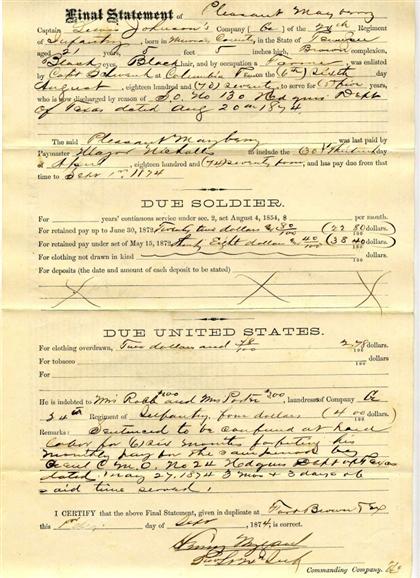 Final Statement of Pleasant Maybery
Captain Lewis Johnson's Company (E) of the 24th Regiment
of Infantry, born in County in the State of Tennessee
aged 21 years, 5 feet 5 inches high, Brown complexion,
Black eyes, Black hair, and by occupation a Farmer, was enlisted
by Capt at Columbia Tenn on the (6th) Sixth day of
August, eighteen hundred and (72) seventy to serve for years,
who is now discharged by reason of S.O. No 130 Hdqrs Dept
of Texas dated Aug 20th 1874
The said Pleasant Maybery was last paid by
Paymaster Major Nicholls to include the (30) day
of April, eighteen hundred and (74) seventy four, and has pay due from that
time to Sept 1st 1874
DUE SOLDIER.
For years' continuous service under sec. 2, act August 4, 1854, $ per month.
For retained pay up to June 30, 1872, Twenty two dollars & 80/100 (22 80/100 dollars.)
For retained pay under act of May 15, 1872, Thirty Eight dollars & 40/100 (38 40/100 dollars.)
For clothing not drawn in kind dollars.
For deposits (the date and amount of each deposit to be stated)
DUE UNITED STATES.
For clothing overdrawn, Two dollars and 78/100 2 78/100 dollars.
For tobacco dollars
He is indebted to Mrs Robb $2.00 and Mrs Porter 2.00, laundress of Company E
24th Regiment of Infantry, four dollars (4 00/100 dollars.)
Remarks: Sentenced to be confined at hard
labor for (6) six months forfeiting his
monthly pay for the same period by
C.M.O. No 24 Hdqrs Dept of Texas
dated May 27, 1874 3 mos & 3 days of
said time served.
I CERTIFY that the above Final Statement, given in duplicate at Fort Brown Tex
this 1st day of Sept 1874, is correct.
Commanding Company.